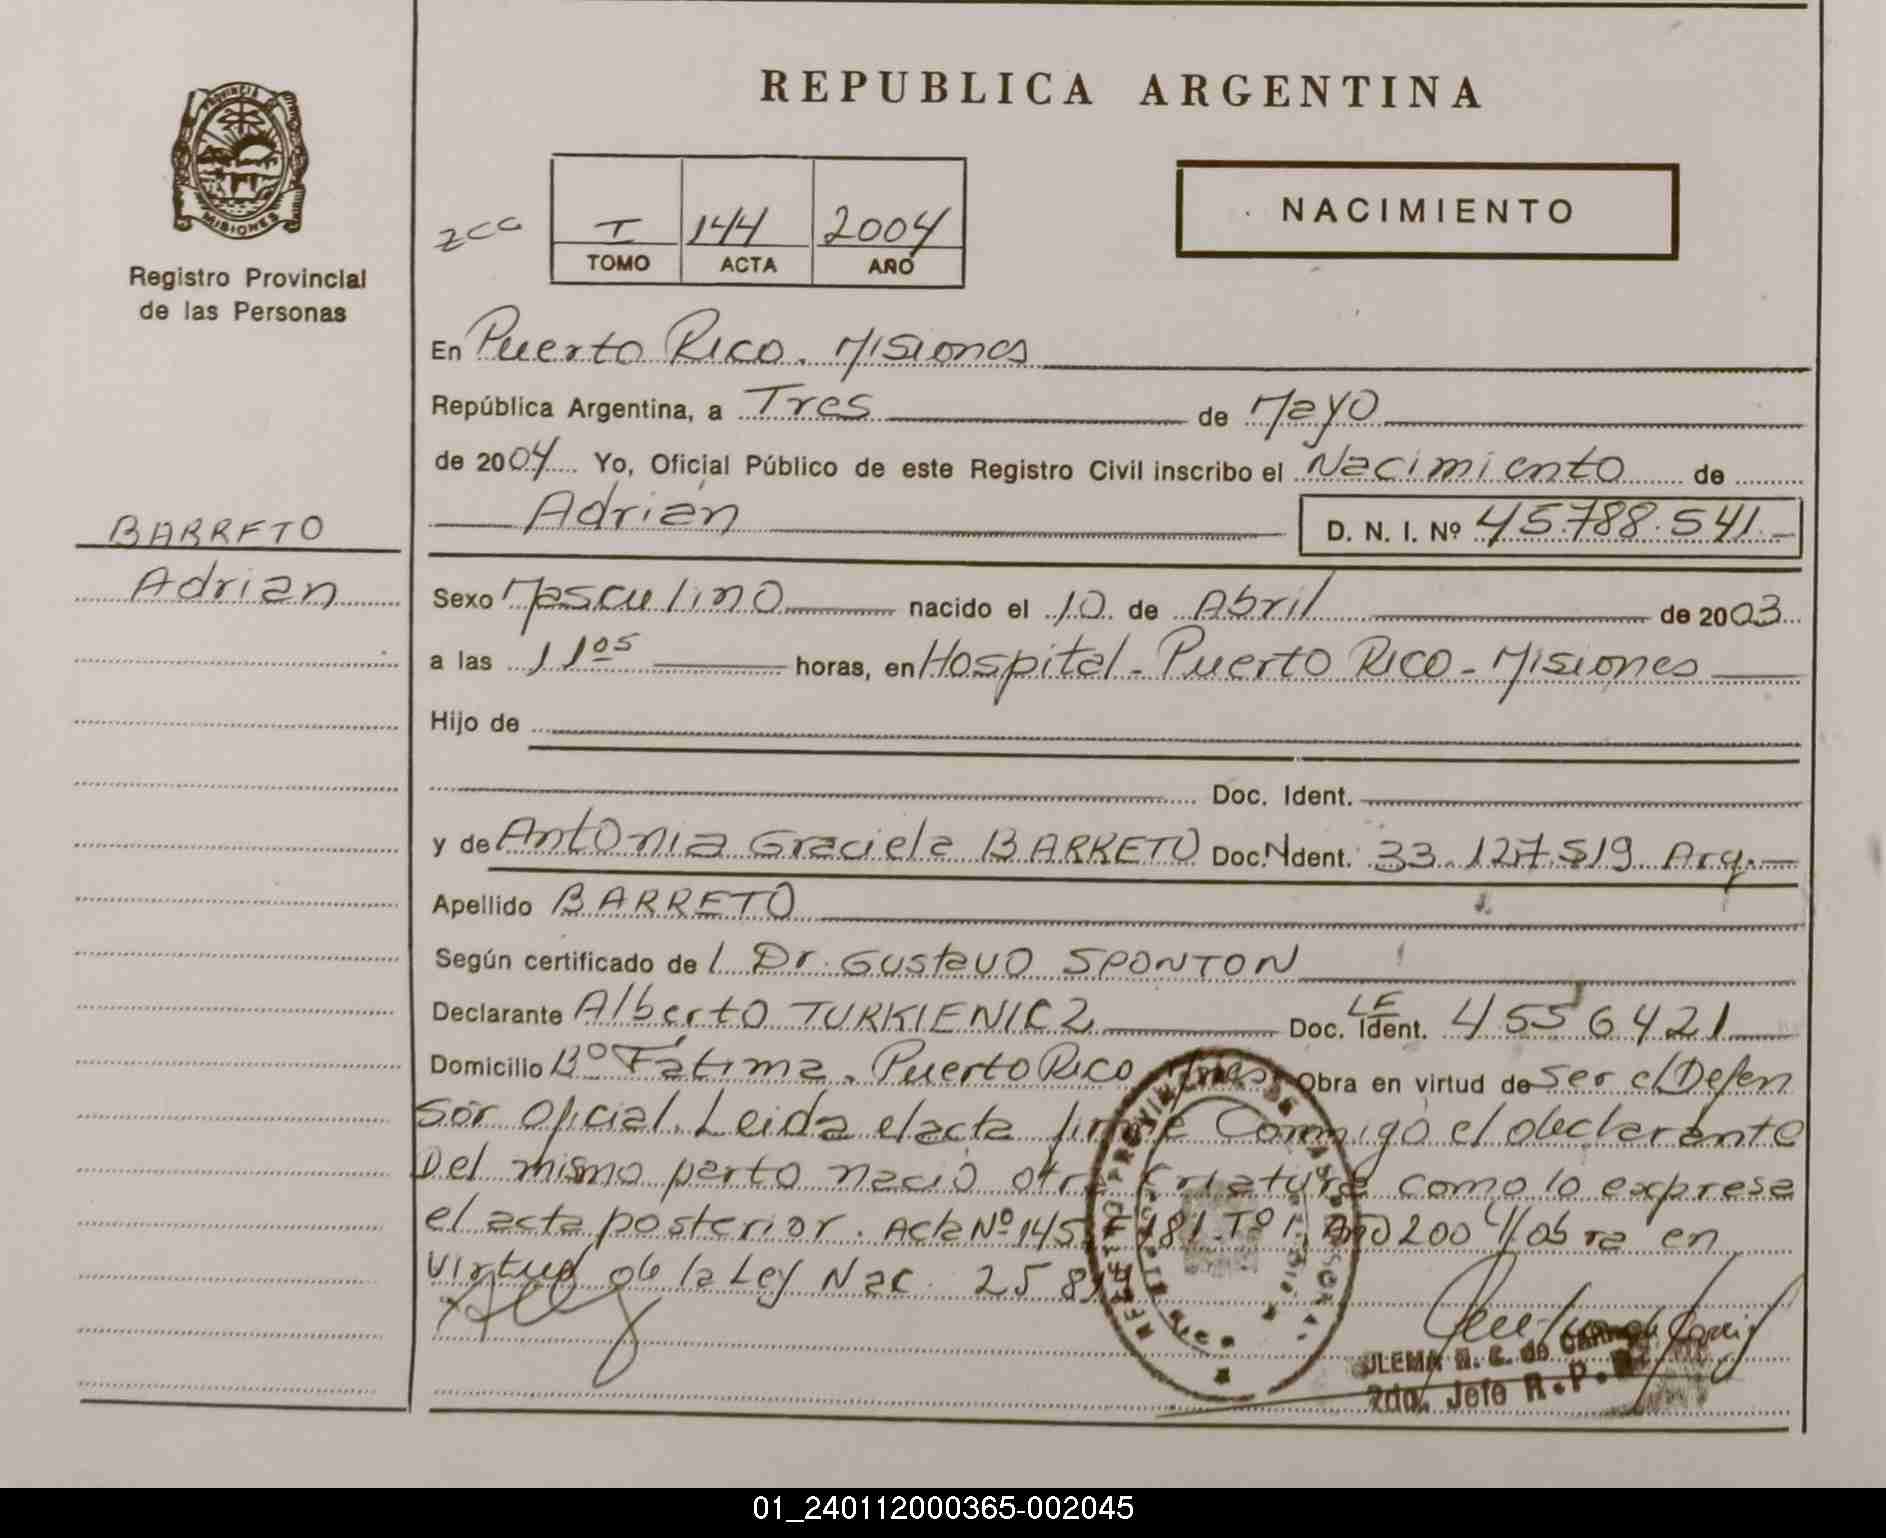 REPUBLICA ARGENTINA
PROVINCIA DE
MISIONES
Registro Provincial
de las Personas
I 144 2004
TOMO ACTA AÑO
NACIMIENTO
En Puerto Rico. Misiones
República Argentina, a Tres de Mayo
de 2004 Yo, Oficial Público de este Registro Civil inscribo el Nacimiento de
Adrián D. N. I. Nº 45.788.541.-
BARRETO
Adrián
Sexo Masculino nacido el 10 de Abril de 2003
a las 11 05 horas, en Hospital - Puerto Rico - Misiones
Hijo de
Doc. Ident.
y de Antonia Graciela BARRETO Doc. Ident. 33.127.519 Arg.
Apellido BARRETO
Según certificado de l Dr. Gustavo SPONTON
Declarante Alberto TURKIENICZ Doc. Ident. LE 4556421
Domicilio Bº Fátima. Puerto Rico Mnes Obra en virtud de ser el Defen
sor Oficial. Leida el acta firma Conmigo el declarante
Del mismo parto nació otra Criatura como lo expresa
el acta posterior. Acta Nº 145 Fº 181 Tº I Año 2004 / obra en
virtud de la Ley Nac.
ULEMA
2do. Jefe R.P.P.
01_240112000365-002045